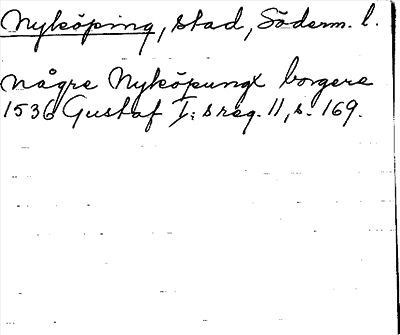 Nyköping, stad, Söderm. l.
någre Nyköpungx borgere
1536 Gustaf I:s reg. 11, s. 169.